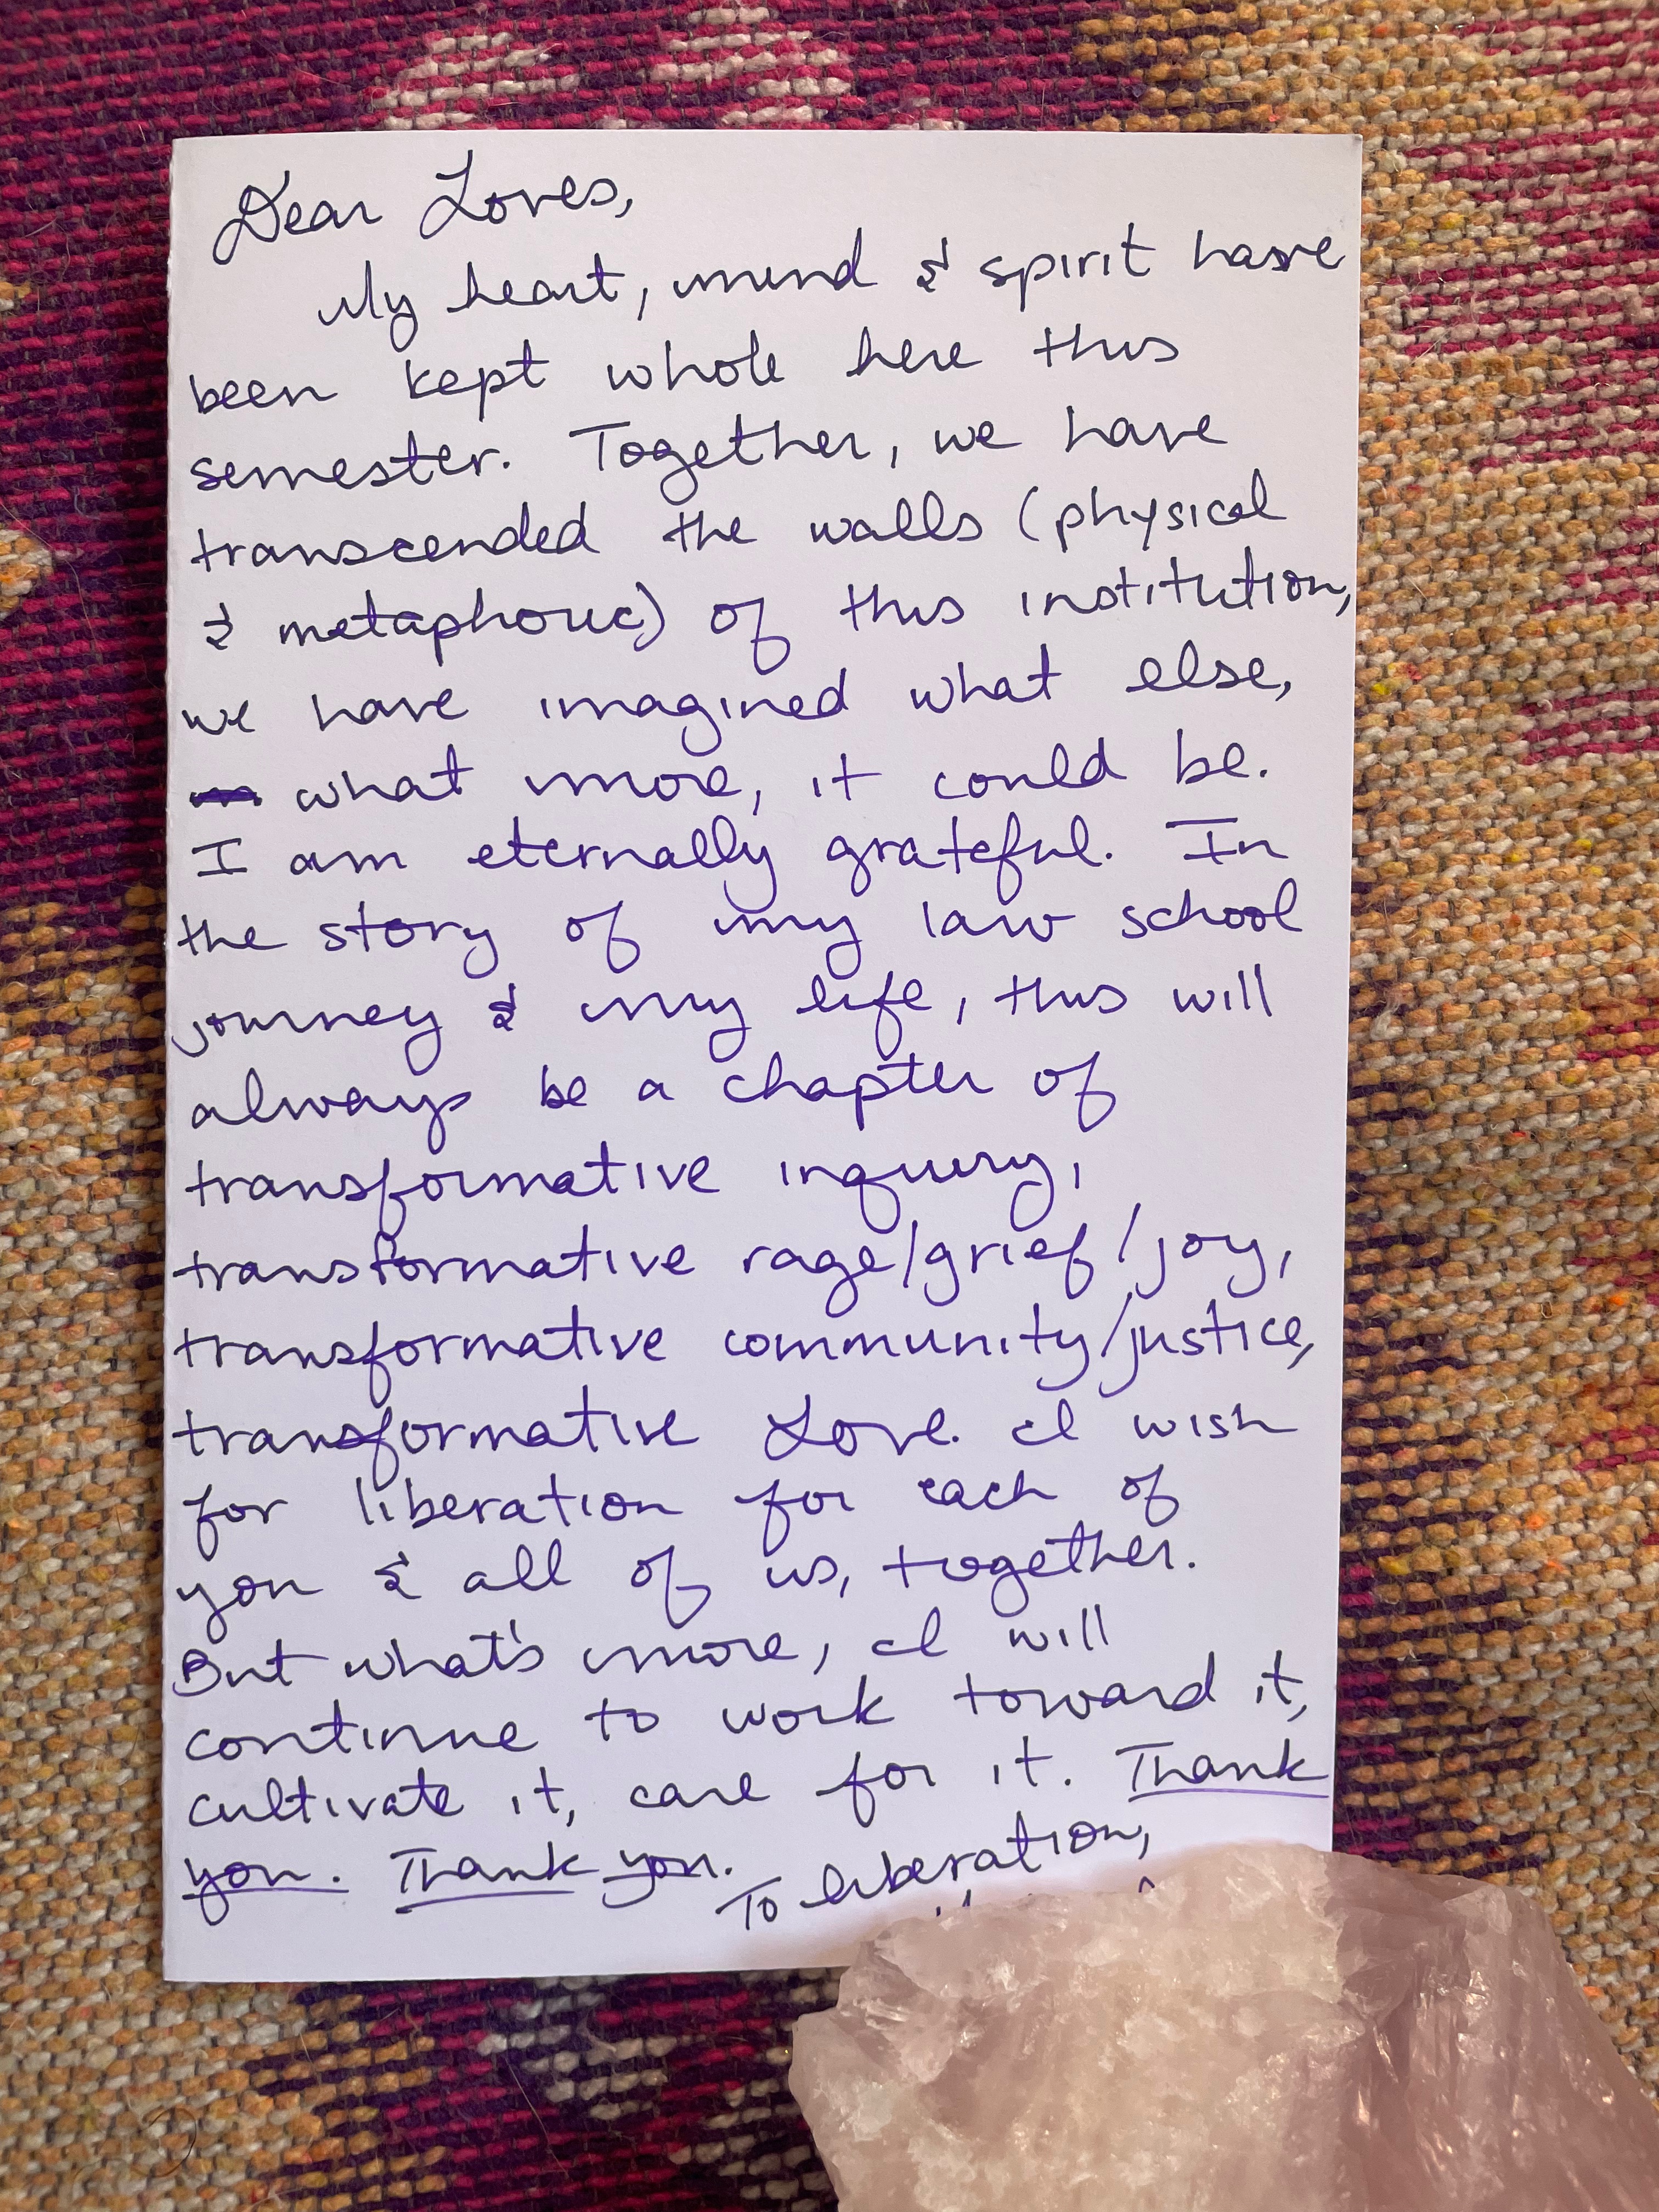 Dear Loves,
My heart, mind & spirit have
been kept whole here this
semester. Together, we have
transcended the walls (physical
& metaphoric) of this institution,
we have imagined what else,
what more, it could be.
I am eternally grateful. In
the story of my law school
journey & my life, this will
always be a chapter of
transformative inquiry,
transformative rage/grief/joy,
transformative community/justice,
transformative Love. I wish
for liberation for each of
you & all of us, together.
But what's more, I will
continue to work toward it,
cultivate it, care for it. Thank
you. Thank you.
To liberation,